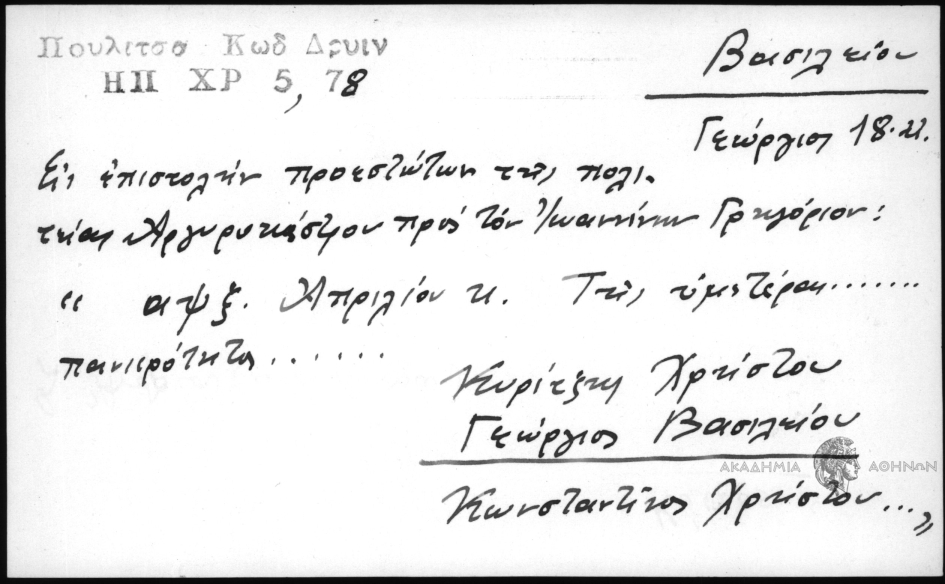 Πουλιτσα Κωδ Δρυιν
ΗΠ ΧΡ 5, 78
Βασιλείου
Γεώργιος 18. κ.
Εἰς ἐπιστολὴν προεστώτων τῆς πολι-
τείας Ἀργυροκάστρου πρὸς τὸν Ἰωαννίνων Γρηγόριον:
“ αψξ. Ἀπριλίου κ. Τῆς ὑμετέρας.......
πανιερότητος......
Χρήστου
Γεώργιος Βασιλείου
ΑΚΑΔΗΜΙΑ ΑΘΗΝΩΝ
Κωνσταντῖνος Χρήστου...„